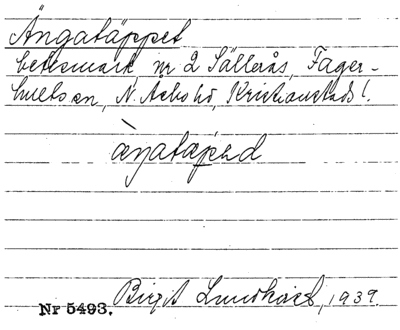 Ängatäppet
betesmark, nr 2 Sällerås, Fager-
hults sn, N. Åsbo hd, Kristianstads l.
ængatæped
Nr 5493. Birgit Lundkvist, 1939.